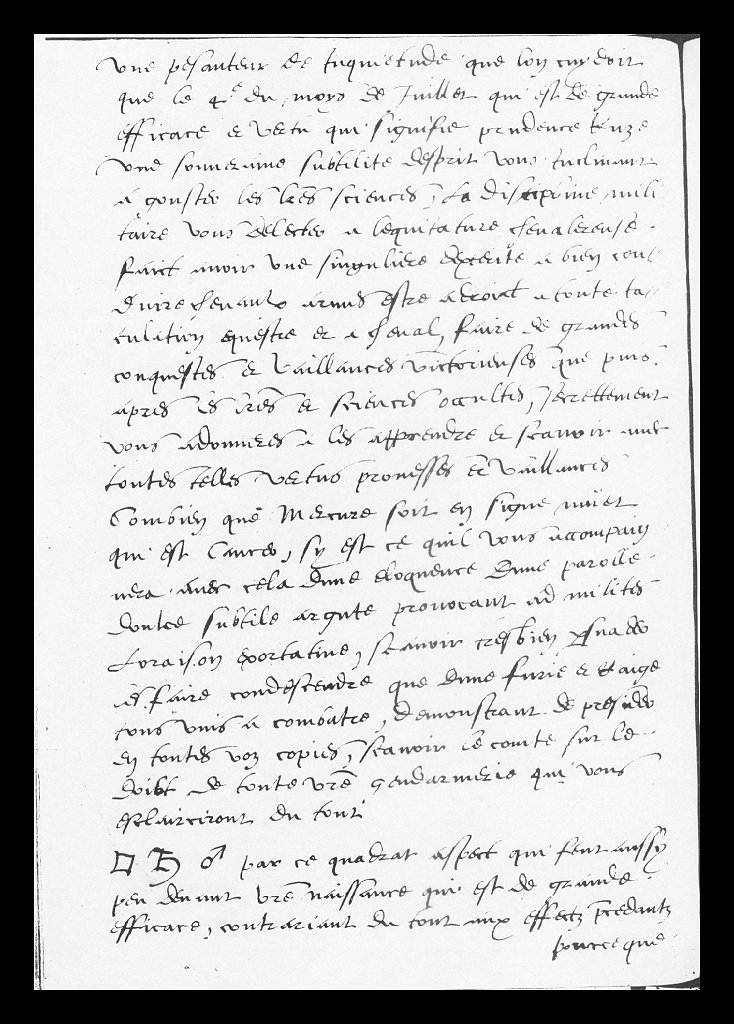 une pesanteur de Inquietude que lon cuydoit
que le 4e du moys de Juillet qui est de grande
efficace et vertu qui signifie prudence
une souveraine subtilite desprit vous Inclinant
a gouster les lres sciences, La discipline mili
taire vous delecter a lequitature chevalereuse.
faict avoir une singuliere dexterite a bien con-
duire chevaulx armes estre adroict a toute Ja-
culation equestre et a cheval, faire de grandes
conquestes et vaillances victorieuses que puis
apres es lres et sciences occultes, secrettement
vous adonneres a les apprendre et scavoir avec
toutes telles vertus prouesses et vaillances
Combien que Mercure soit en signe muet
qui est Cancer, sy est ce quil vous accompaign
nera avec cela dune eloquence dune parolle
doulce subtile argute provocant ad milites
Loraison exortative, scavoir tresbien psuader
et faire condescendre que dune furie et
tous unis a combatre, demonstrant de presider
en toutes voz copies, scavoir le comte sur le
doibt de toute vre gendarmerie qui vous
esclairciront du tout
□ ♄ ♂ par ce quadrat aspect qui feut aussy
peu devant vre naissance qui est de grande
efficace, contrariant du tout aux effectz precedantz
pource que